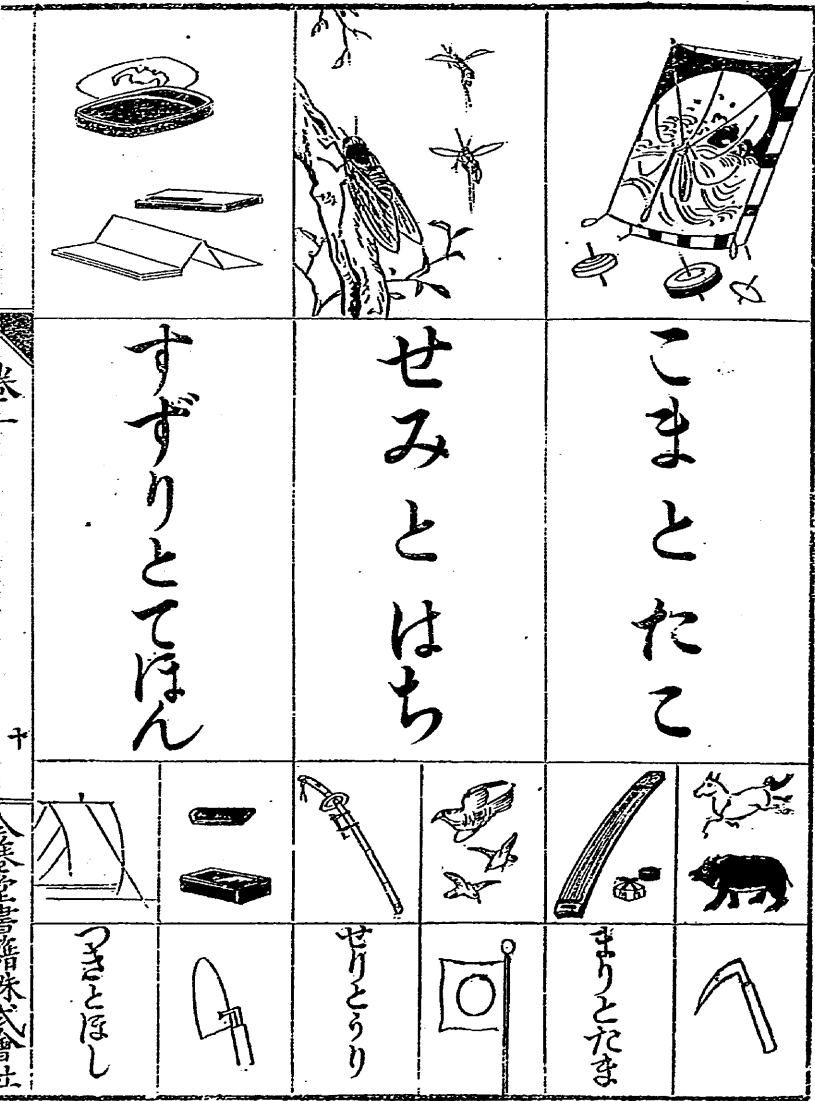 こまとたこ
せみとはち
すずりとてほん
まりとたま
せりとうり
つきとほし
卷一
十
書籍株式會社